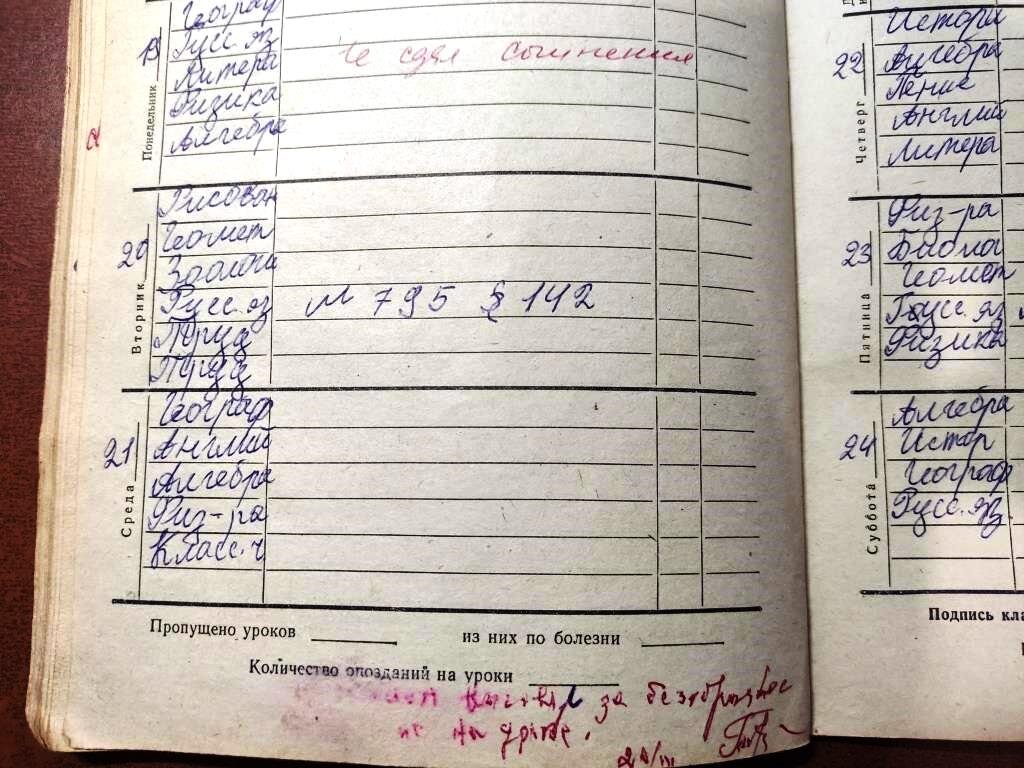 Географ
19
Понедельник
Русс. яз
Литера
Не сдал сочинения
Физика
Алгебра
20
Вторник
Рисован
Геомет
Зоологи
Русс. яз № 795 § 142
Труд
Труд
21
Среда
Географ
Англий
Алгебра
Физ-ра
Класс. ч
Пропущено уроков
из них по болезни
Количество опозданий на уроки
за безобразное
22
Четверг
Истори
Алгебра
Пение
Англий
Литера
23
Пятница
Физ-ра
Биолог
Геомет
Русс. яз
Физика
24
Суббота
Алгебра
Истор
Географ
Русс. яз
Подпись кла